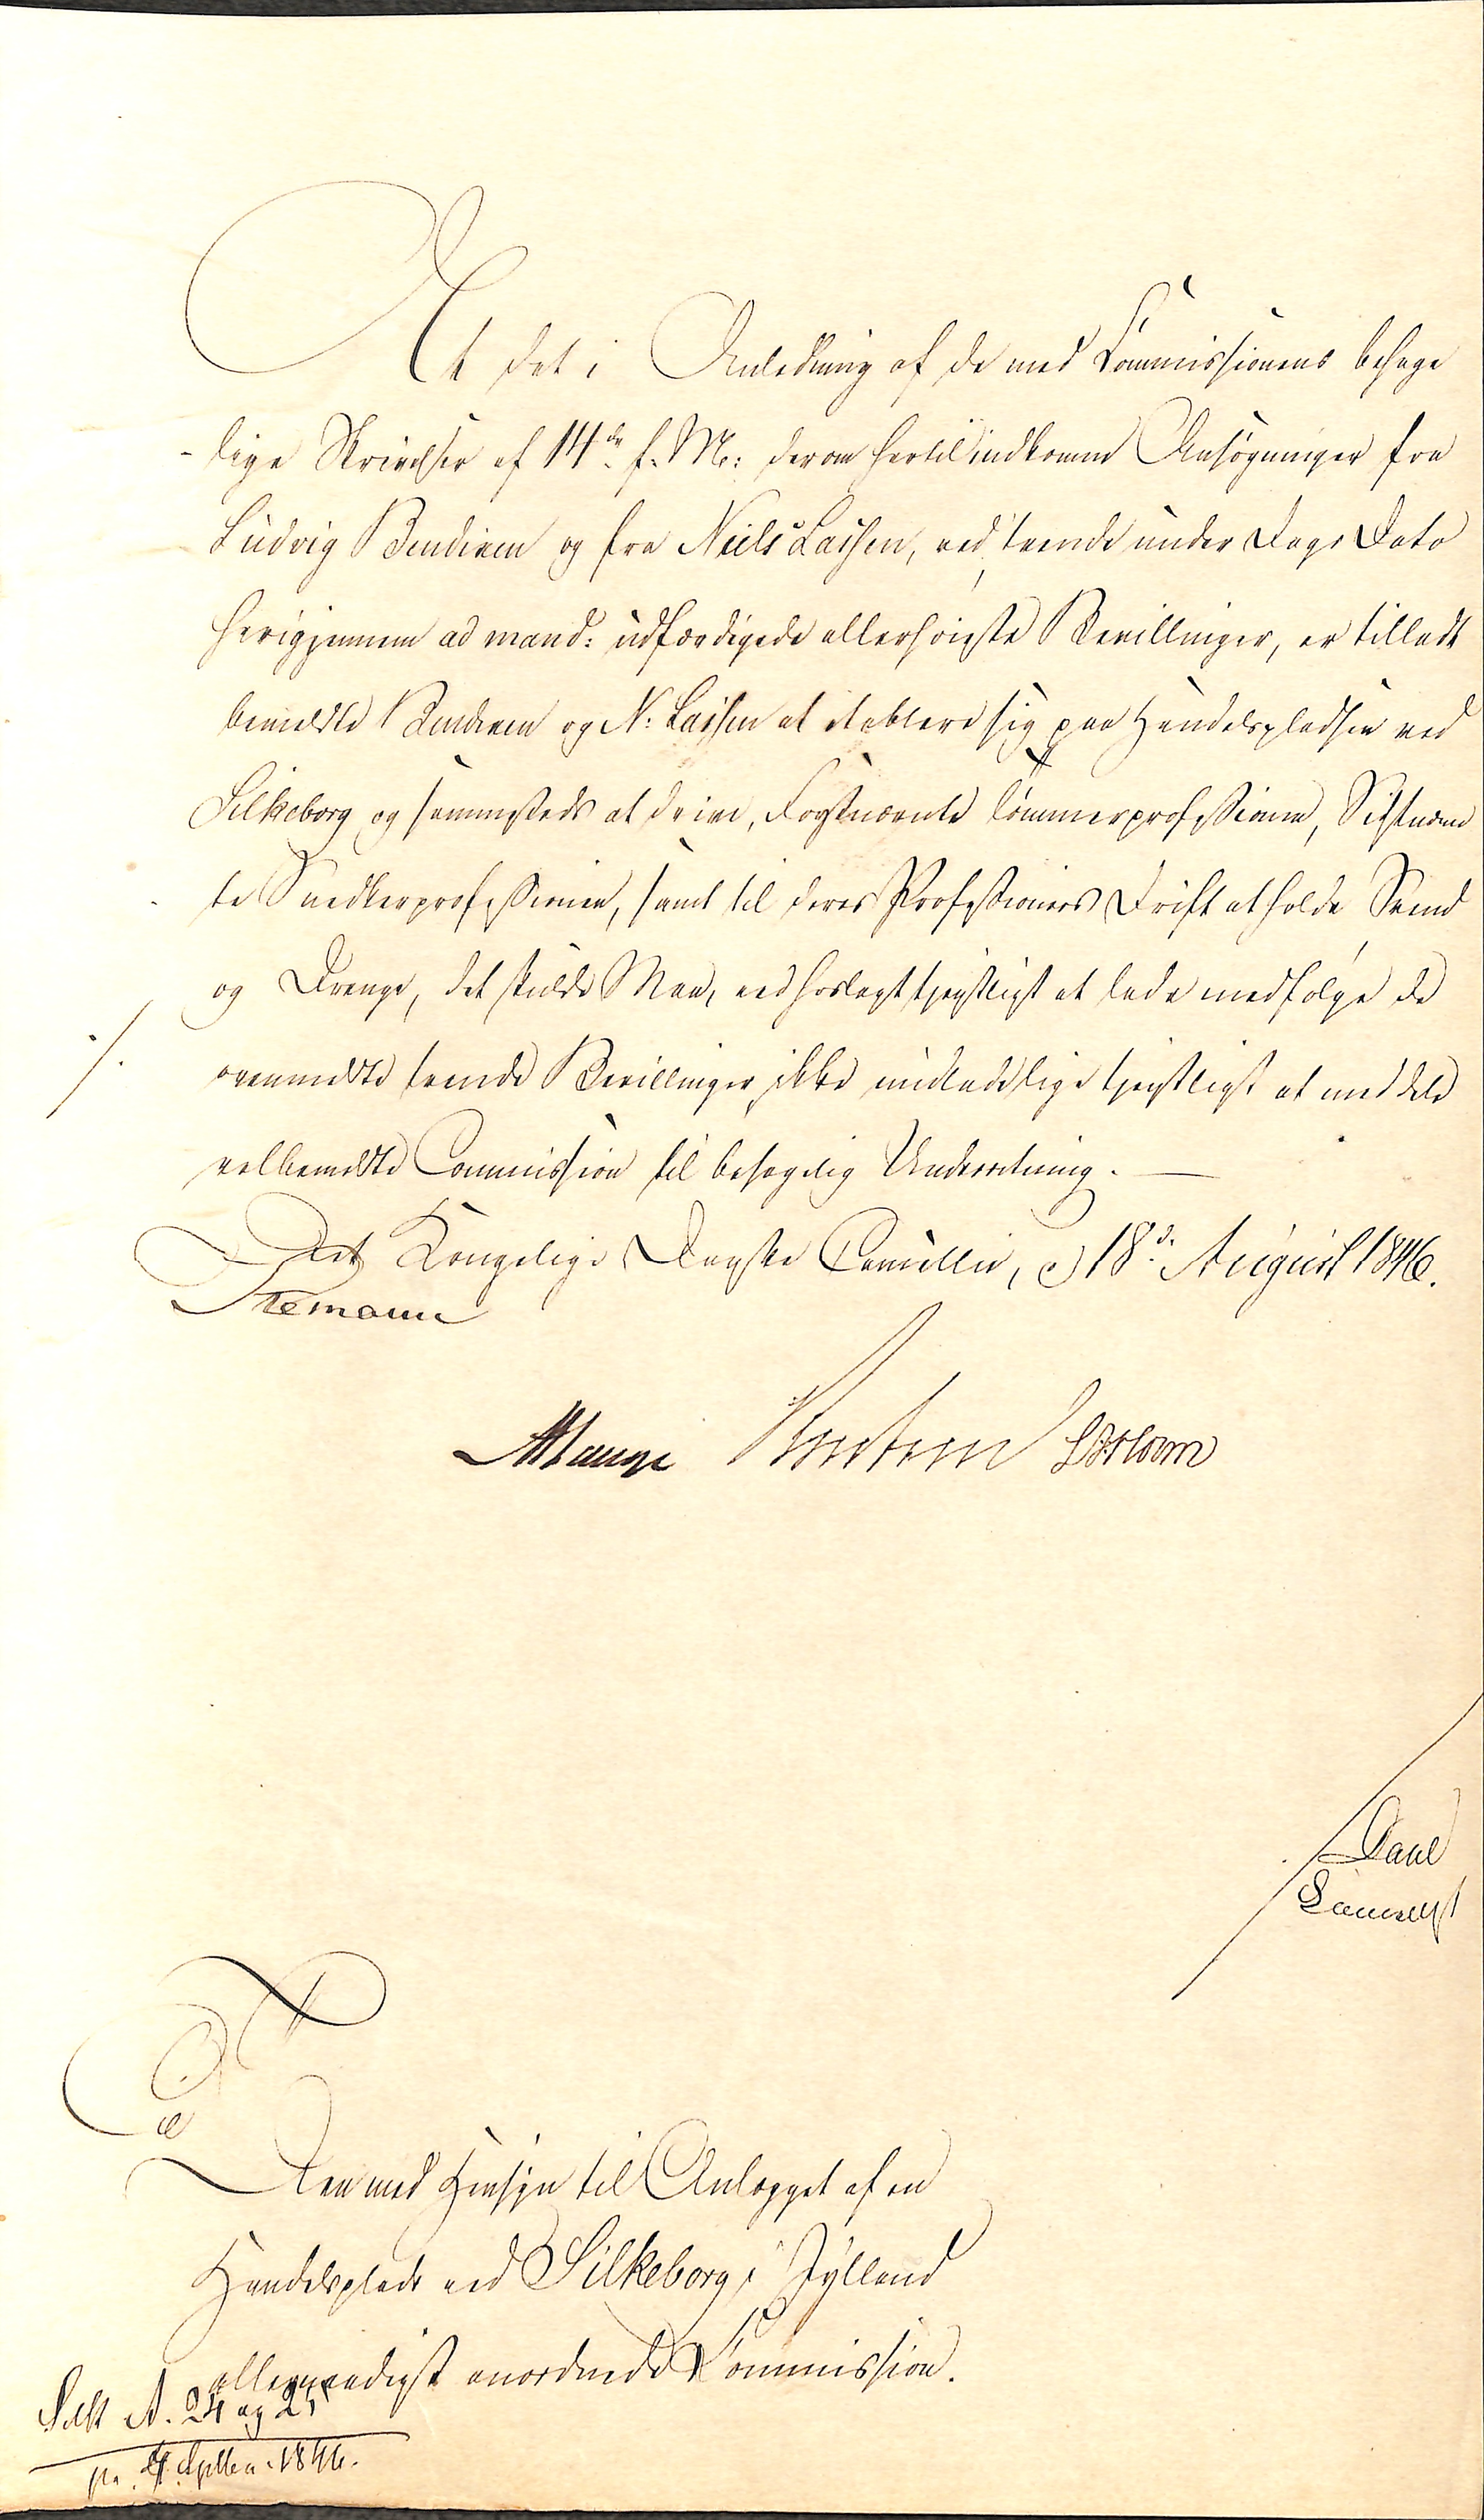 At det i Anledning af de med Commissionens behage
-lige Skrivelser af 14de f. M: derom hertil indkomne Ansøgninger fra
Ludvig Bendixen og fra Niels Laisen, ved tvende under Dags Dato
herigjennem ad mand: udfærdigede allerhøieste Bevillinger, er tilladt
bemeldte Bendixen og N: Laisen at etablere sig paa Handelspladsen ved
Silkeborg og sammesteds at drive, Førstnævnte Tømmerprofessionen, Sidstnævn
te Snedkerprofessionen, samt til deres Professioners Drift at holde Svend
og Drenge, det skulde Man, ved hoslagt tjenstligst at lade medfølge de
ovenmeldte tvende Bevillinger, ikke undlade lige tjenstligst at meddele
velbemeldte Commission til behagelig Underretning. —
Det Kongelige Danske Cancellie, d 18d: August 1846.
Stemann
Lange
Til
Den med Hensyn til Anlægget af en
Handelsplads ved Silkeborg i Jylland
allernaadigst anordnede Commission.
Silk N. 24 og 25
pr. 4. Septbr. 1846.